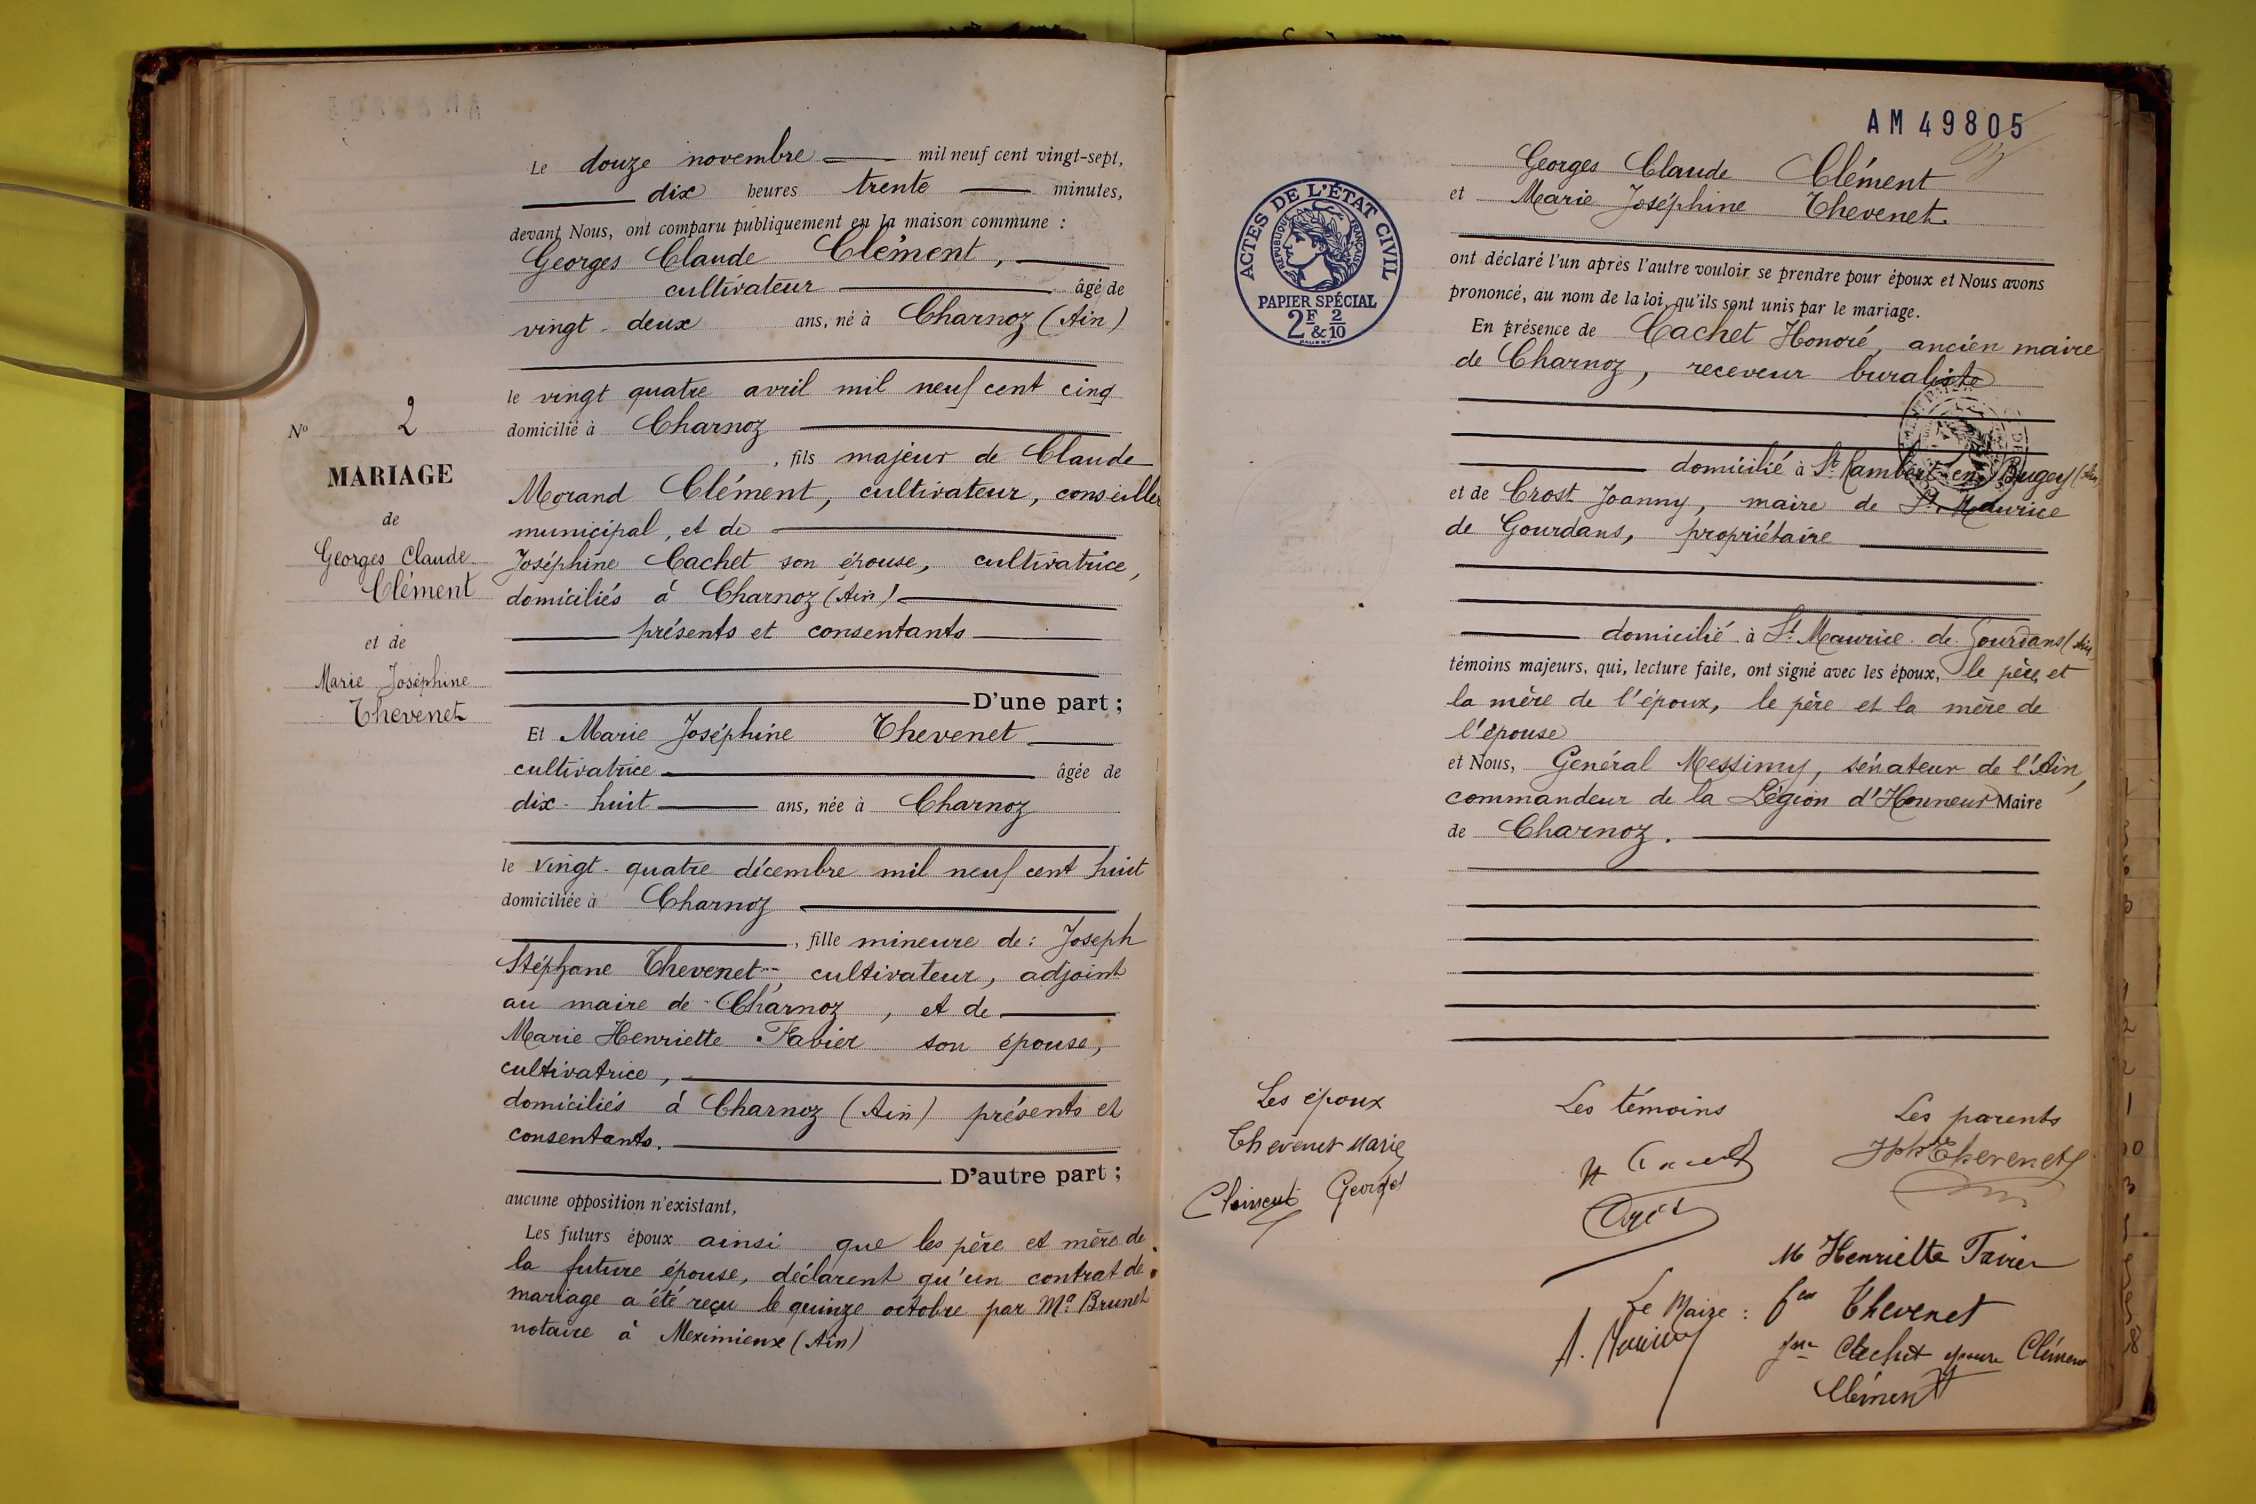 N° 2
MARIAGE
de
Georges Claude
Clément
et de
Marie Joséphine
Thevenet
Le douze novembre mil neuf cent vingt-sept,
dix heures trente minutes,
devant Nous, ont comparu publiquement en la maison commune :
Georges Claude Clément,
cultivateur âgé de
vingt-deux ans, né à Charnoz (Ain)
le vingt quatre avril mil neuf cent cinq
domicilié à Charnoz
, fils majeur de Claude
Morand Clément, cultivateur, conseiller
municipal, et de
Joséphine Cachet son épouse, cultivatrice,
domiciliés à Charnoz (Ain)
présents et consentants
D'une part ;
Et Marie Joséphine Thevenet
cultivatrice âgée de
dix-huit ans, née à Charnoz
le vingt-quatre décembre mil neuf cent huit
domiciliée à Charnoz
, fille mineure de : Joseph
Stéphane Thevenet, cultivateur, adjoint
au maire de Charnoz, et de
Marie Henriette Favier son épouse,
cultivatrice,
domiciliés à Charnoz (Ain) présents et
consentants.
D'autre part ;
aucune opposition n'existant,
Les futurs époux ainsi que les père et mère de
la future épouse, déclarent qu'un contrat de
mariage a été reçu le quinze octobre par Me Brunet
notaire à Meximieux (Ain)
AM 49805
ACTES DE L'ÉTAT CIVIL
RÉPUBLIQUE FRANÇAISE
PAPIER SPÉCIAL
2F & 2/10
Georges Claude Clément
et Marie Joséphine Thevenet.
ont déclaré l'un après l'autre vouloir se prendre pour époux et Nous avons
prononcé, au nom de la loi, qu'ils sont unis par le mariage.
En présence de Cachet Honoré, ancien maire
de Charnoz, receveur buraliste
domicilié à St Rambert-en-Bugey (Ain)
et de Crost Joanny, maire de St Maurice
de Gourdans, propriétaire
domicilié à St Maurice de Gourdans (Ain)
témoins majeurs, qui, lecture faite, ont signé avec les époux, le père et
la mère de l'époux, le père et la mère de
l'épouse
et Nous, Général Messimy, sénateur de l'Ain,
commandeur de la Légion d'Honneur Maire
de Charnoz.
Les époux
Thevenet Marie
Clément Georges
Les témoins
Les parents
Thevenet
M Henriette Favier
Thevenet
Le Maire :
A. Messimy
Cachet épouse Clément
Clément